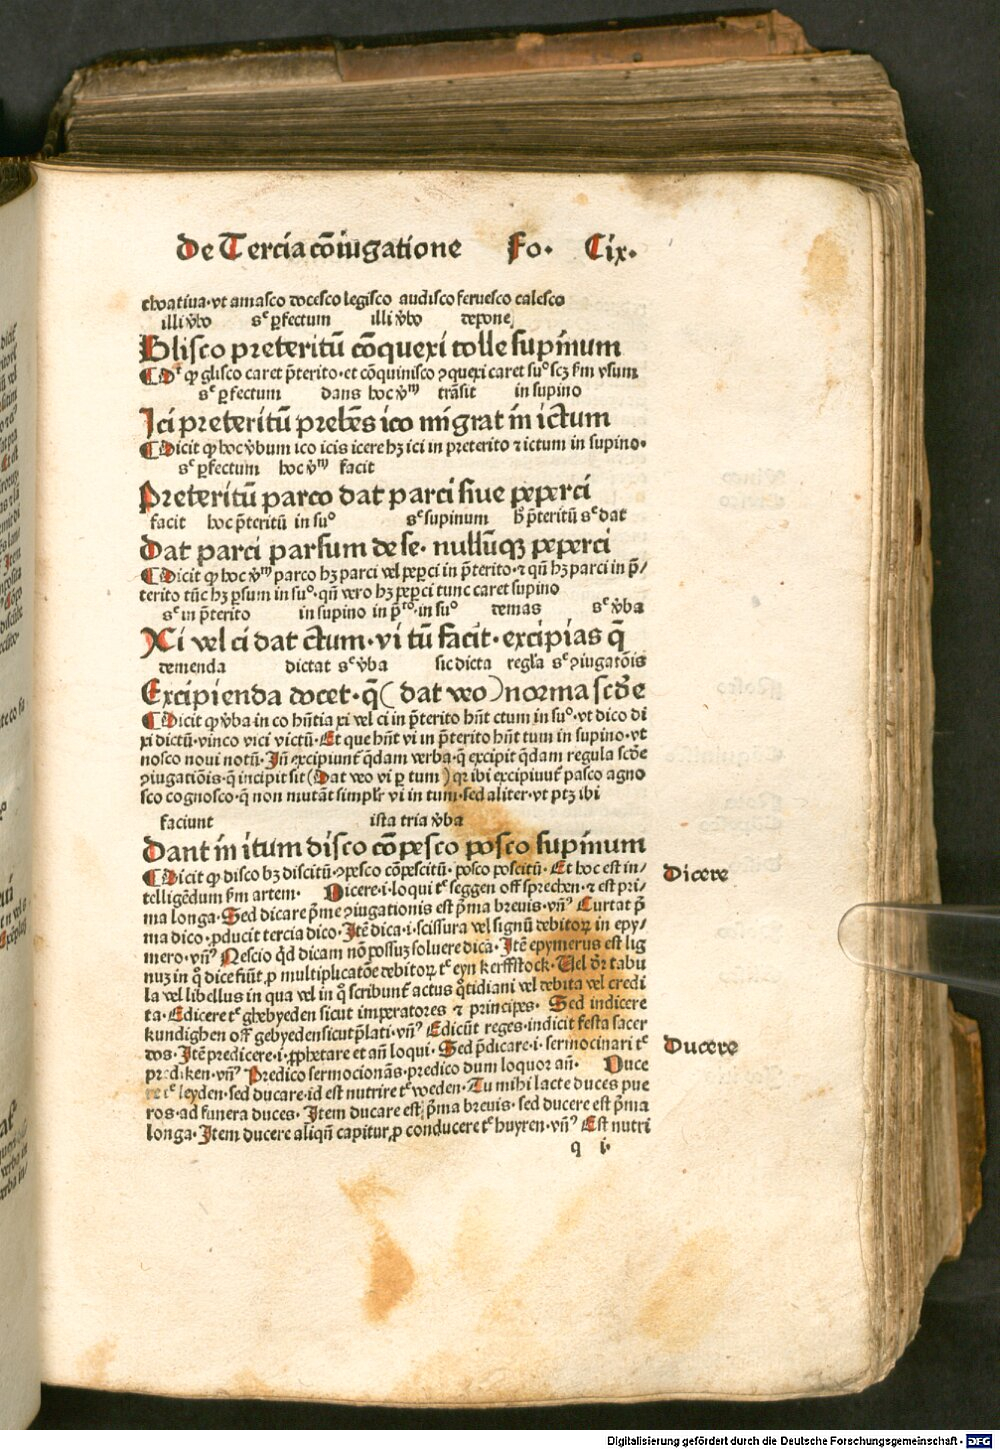 De Tercia cōiugatione Fo. Cix.
choatiua·vt amasco docesco legisco audisco feruesco calesco
illi v̄bo sᵉ ꝑfectum illi v̄bo depone
Glisco preteritū cōquexi tolle supīnum
glisco caret p̄terito·et cōquinisco ꝯquexi caret
sᵉ ꝑfectum dans hoc v̄ᵐ trāsit in supino
Ici preteritū prebēs ico migrat in ictum
¶ Dicit ꝙ hoc v̄bum ico icis icere hꝫ ici in preterito ⁊ ictum in supino·
sᵉ ꝑfectum hoc v̄ᵐ facit
Preteritū parco dat parci siue peperci
facit hoc p̄teritū in suᵒ sᵉ supinum p̄teritū sᵉ dat
Dat parci parsum de se· nullūqꝫ peperci
¶ Dicit ꝙ hoc v̄ᵐ parco hꝫ parci vel peꝑci in p̄terito·⁊ qn̄ hꝫ parci in p̄/
terito tūc hꝫ ꝑsum in suᵒ·qn̄ vero hꝫ peꝑci tunc caret supino
sᵉ in p̄terito in supino in p̄ᵗᵒ·in suᵒ demas sᵉ v̄ba
Xi vel ci dat ctum·vi tū facit·excipias q̄
demenda dictat sᵉ v̄ba sic dicta regl̄a sᵉ ꝯiugatōis
Excipienda docet·q̄( dat veo )norma scd̄e
¶ Dicit ꝙ v̄ba in co hn̄tia xi vel ci in p̄terito hn̄t ctum in suᵒ·vt dico di
xi dictū·vinco vici victū·Et que hn̄t vi in p̄terito hn̄t tum in supino·vt
nosco noui notū·In̄ excipiunt᷑ q̄dam verba·q̄ excipit q̄dam regula scd̄e
ꝯiugatiōis·q̄ incipit sit(Dat veo vi ꝑ tum )qꝛ ibi excipiuut᷑ pasco agno
sco cognosco·q̄ non mutāt simpl'r vi in tum·sed aliter·vt ptꝫ ibi
faciunt ista tria v̄ba
Dant in itum disco cōpesco posco supīnum
¶ Dicit ꝙ disco hꝫ discitū·ꝯpesco cōpescitū· posco poscitū·Et hoc est in/
telligēdum ẜm artem· Dicere·i·loqui tᵉ seggen off sprechen·⁊ est pri/
ma longa·Sed dicare p̄me ꝯiugationis est p̄ma breuis·vn̄ꝰ Curtat p̄
ma dico·ꝓducit tercia dico·Itē dica·i·scissura vel signū debitoꝝ in epy/
mero·vn̄ꝰ Nescio qd̄ dicam nō possuꝫ soluere dicā·Itē epymerus est lig
nuꝫ in q̄ dice fiūt ꝓ multiplicatōe debitoꝝ tᵉ eyn kerffstock·Vel dr̄ tabu
la vel libellus in qua vel in q̄ scribunt᷑ actus q̄tidiani vel debita vel credi
ta·Edicere tᵉ ghebyeden sicut imperatores ⁊ principes· Sed indicere
kundighen off gebyeden sicut p̄lati·vn̄ꝰ Edicūt reges·indicit festa sacer
dos·Itē predicere·i·ꝓphetare et an̄ loqui·Sed p̄dicare·i·sermocinari tᵉ
prediken·vn̄ꝰ Predico sermocionās·predico dum loquor an̄· Duce
re tᵉ leyden·sed ducare·id est nutrire tᵉ voeden·Tu mihi lacte duces pue
ros·ad funera duces·Item ducare est p̄ma breuis·sed ducere est p̄ma
longa·Item ducere aliqn̄ capitur ꝓ conducere tᵉ huyren·vn̄ꝰ Est nutri
q i·
Dicere
Ducere
Digitalisierung gefördert durch die Deutsche Forschungsgemeinschaft - DFG